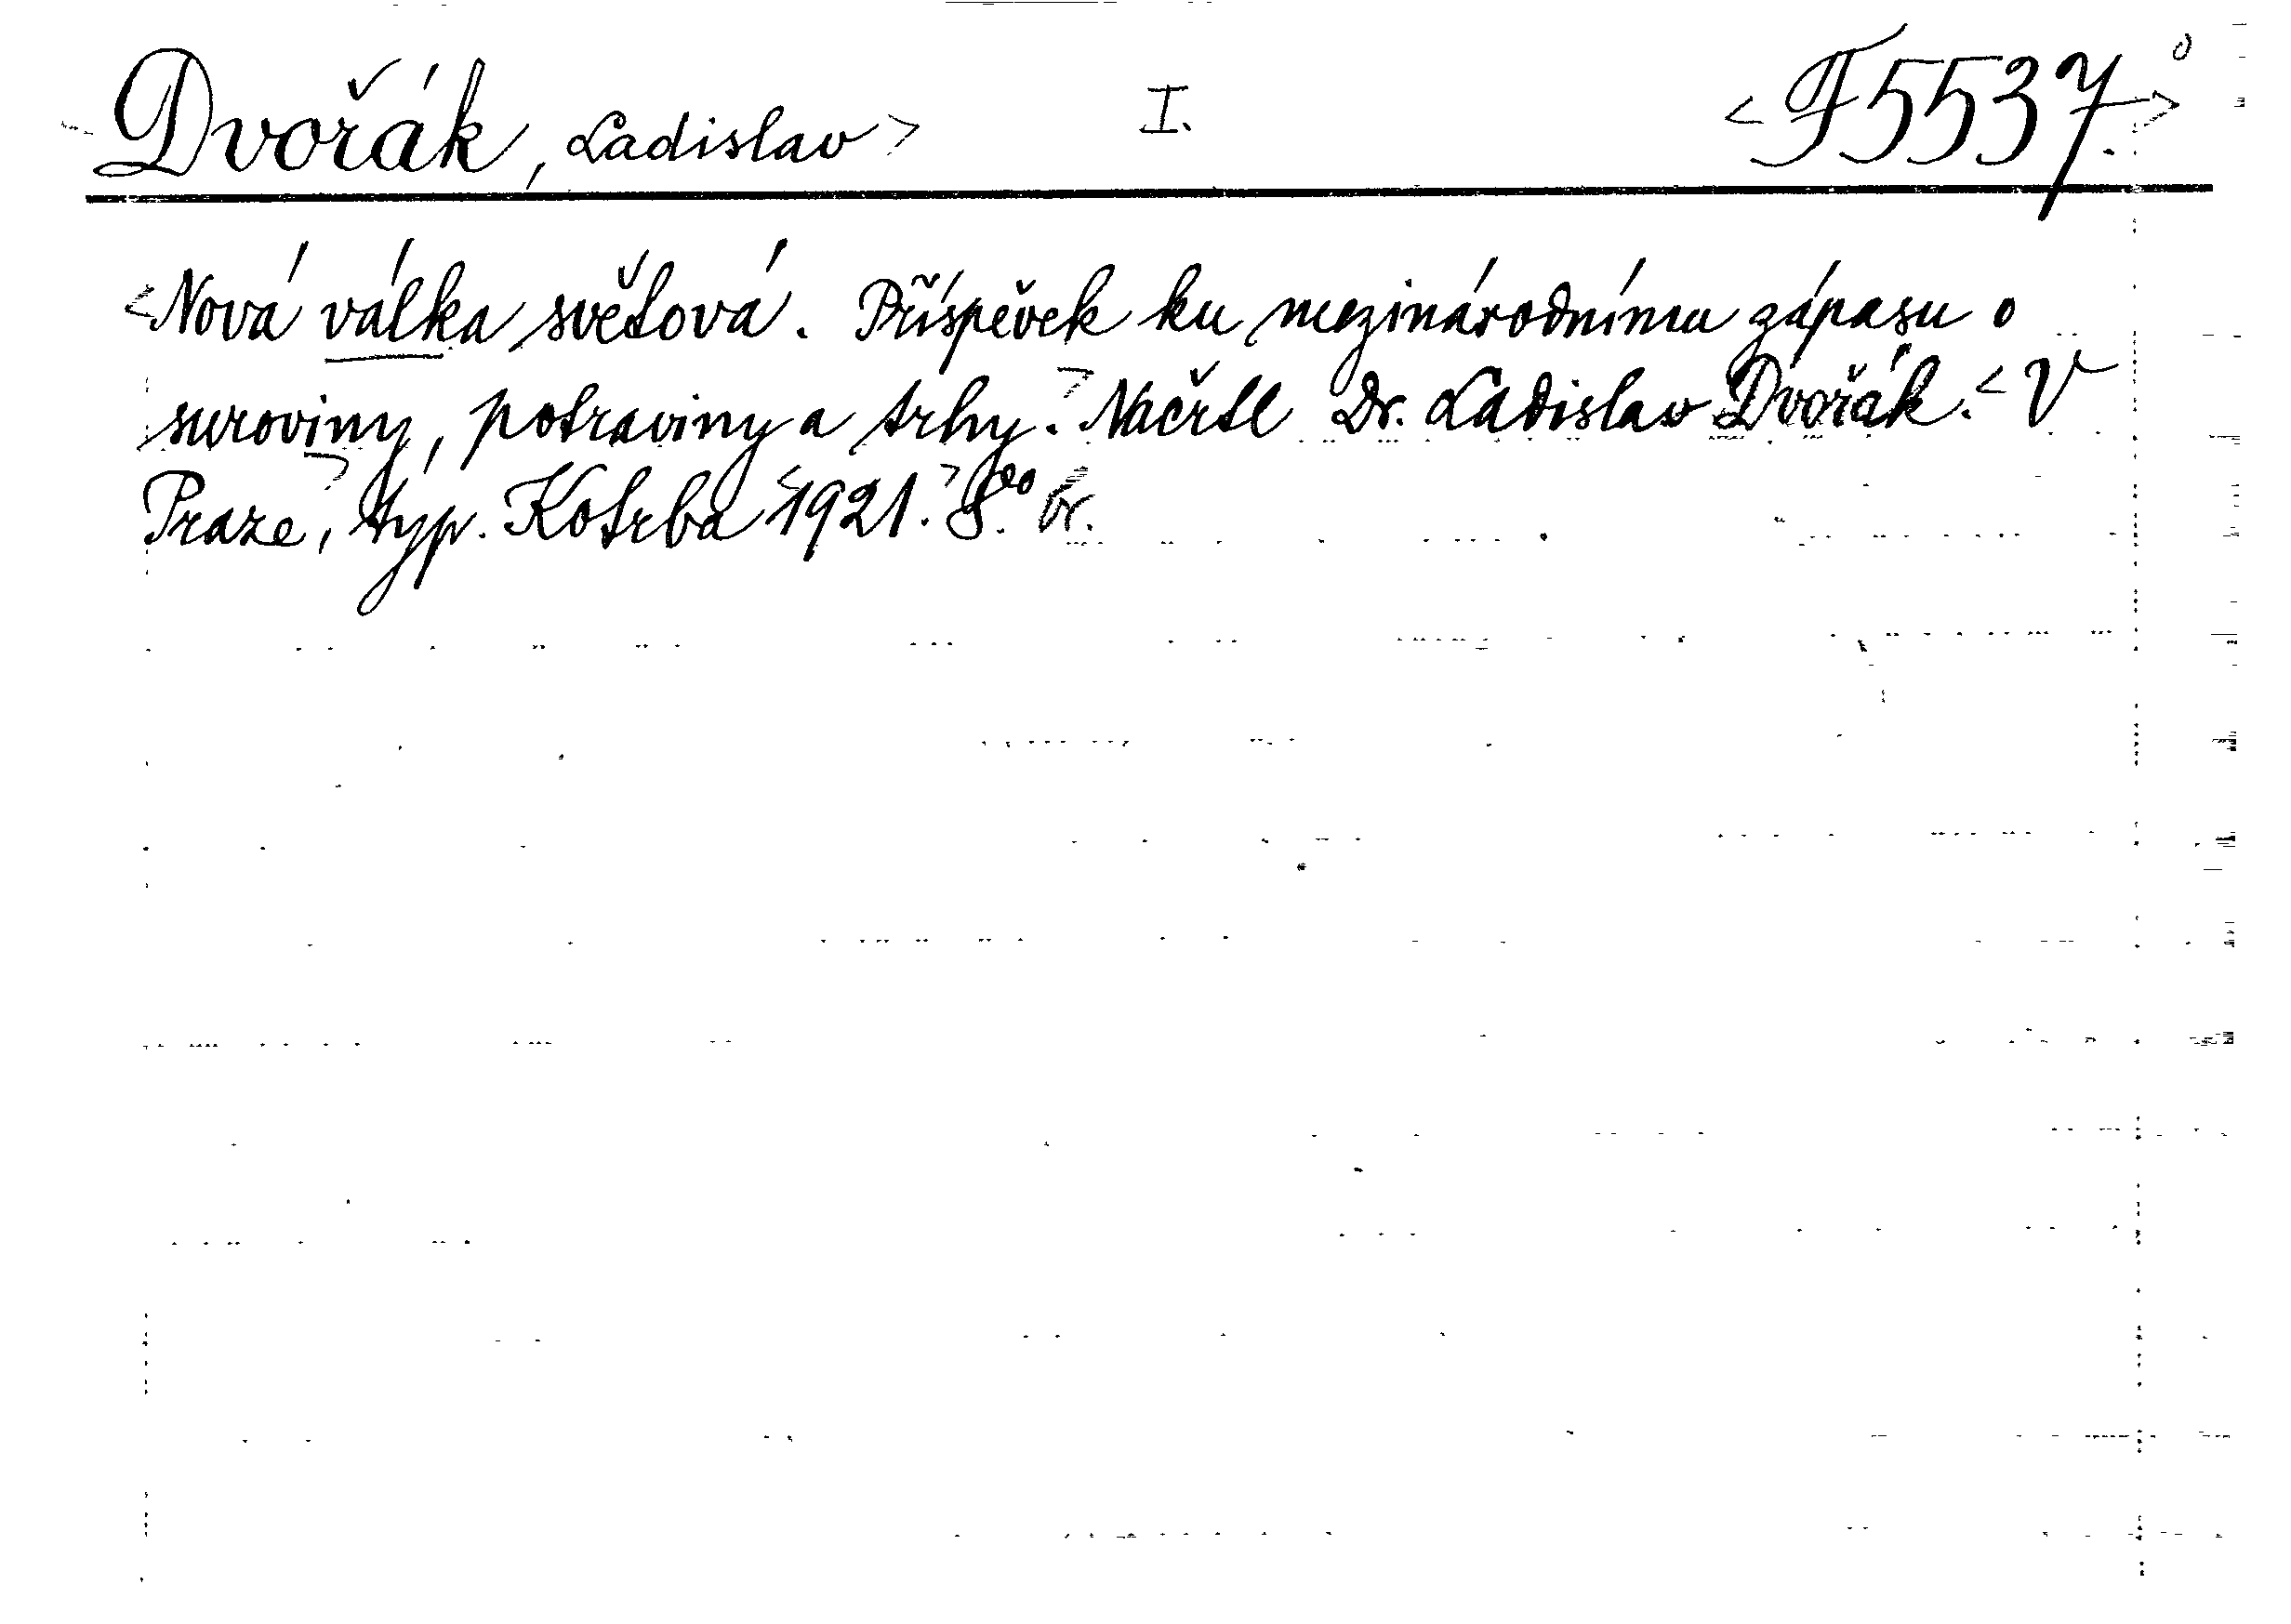 Dvořák, Ladislav> I. <F5537.>
<Nová válka světová. Příspěvek ku mezinárodnímu zápasu o
suroviny, potraviny a trhy.> Načrtl Dr. Ladislav Dvořák. <V
Praze>, typ. Kotrba <1921.> 8.vo br.